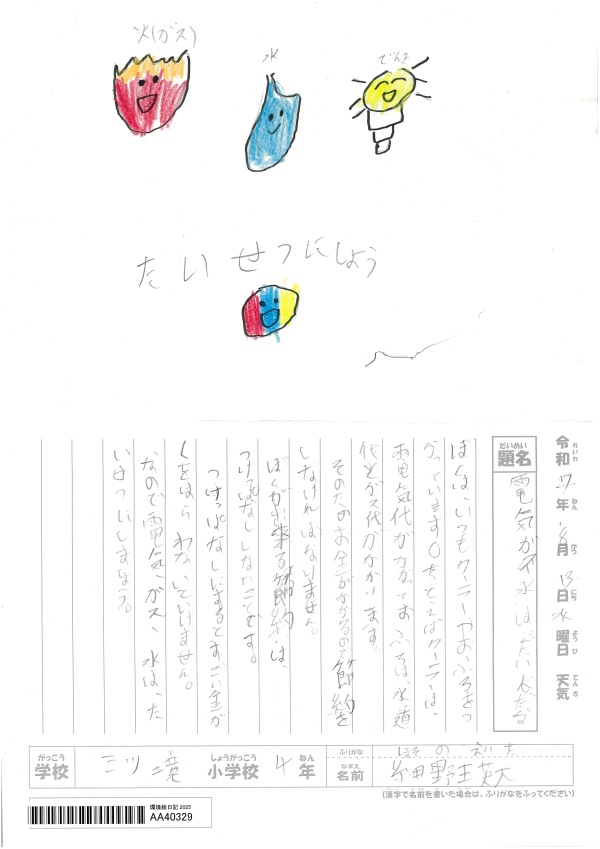 火(ガス)
水
でんき
たいせつにしよう
令和 7年 8月 13日 水曜日 天気
れいわ ねん がつ にち ようび てんき
だいめい
題名
電気ガス水はだいじだな
ぼくは、いつもクーラーやおふろをつ
かっています。たとえばクーラーは、
お電気代がかかっておふろは、水道
代とガス代がかかります。
そのためお金がかかるので節約を
しなければなりません。
ぼくが出来る節約は、
つけっぱなししないことです。
つけっぱなしにするとすごい金が
くをはらわないといけません。
なので電気、ガス、水は、た
いせつにしましょう。
がっこう
学校
三ツ境
しょうがっこう
小学校
4
ねん
年
ふりがな
ほその
なまえ
名前
細野
(漢字で名前を書いた場合は、ふりがなをふってください)
環境絵日記 2025
AA40329